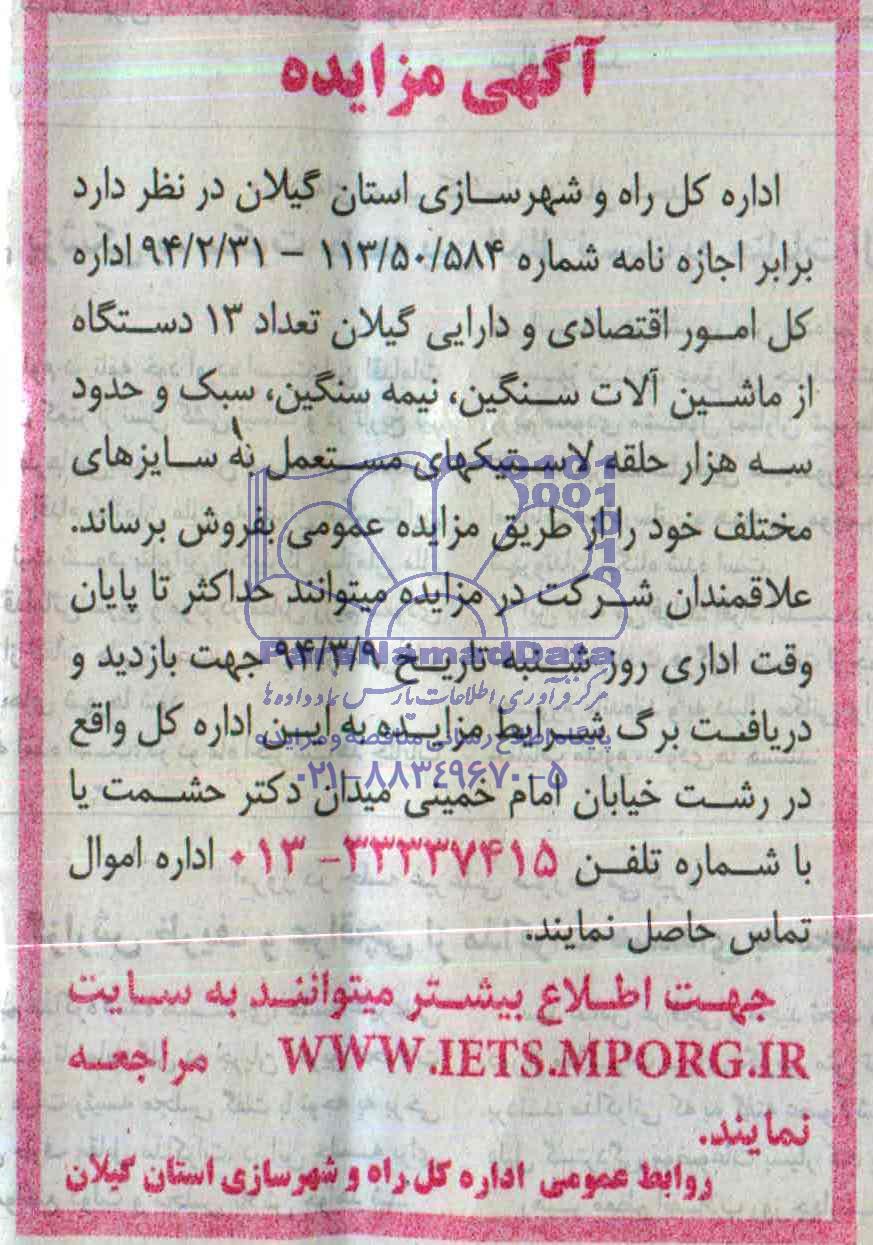 آگهی مزایده
اداره کل راه و شهرسازی استان گیلان در نظر دارد
برابر اجازه نامه شماره ۱۱۳/۵۰/۵۸۴ – ۹۴/۲/۳۱ اداره
کل امور اقتصادی و دارایی گیلان تعداد ۱۳ دستگاه
از ماشین آلات سنگین، نیمه سنگین، سبک و حدود
سه هزار حلقه لاستیکهای مستعمل به سایزهای
مختلف خود را از طریق مزایده عمومی بفروش برساند.
علاقمندان شرکت در مزایده میتوانند حداکثر تا پایان
وقت اداری روز شنبه تاریخ ۹۴/۳/۹ جهت بازدید و
دریافت برگ شرایط مزایده به این اداره کل واقع
در رشت خیابان امام خمینی میدان دکتر حشمت یا
با شماره تلفن ۳۳۳۳۷۴۱۵-۰۱۳ اداره اموال
تماس حاصل نمایند.
جهت اطلاع بیشتر میتوانند به سایت
WWW.IETS.MPORG.IR مراجعه
نمایند.
روابط عمومی اداره کل راه و شهرسازی استان گیلان
ParsNamadData
مرکز فرآوری اطلاعات پارس نماد داده ها
پایگاه اطلاع رسانی مناقصه و مزایده
۰۲۱-۸۸۳۴۹۶۷۰-۵